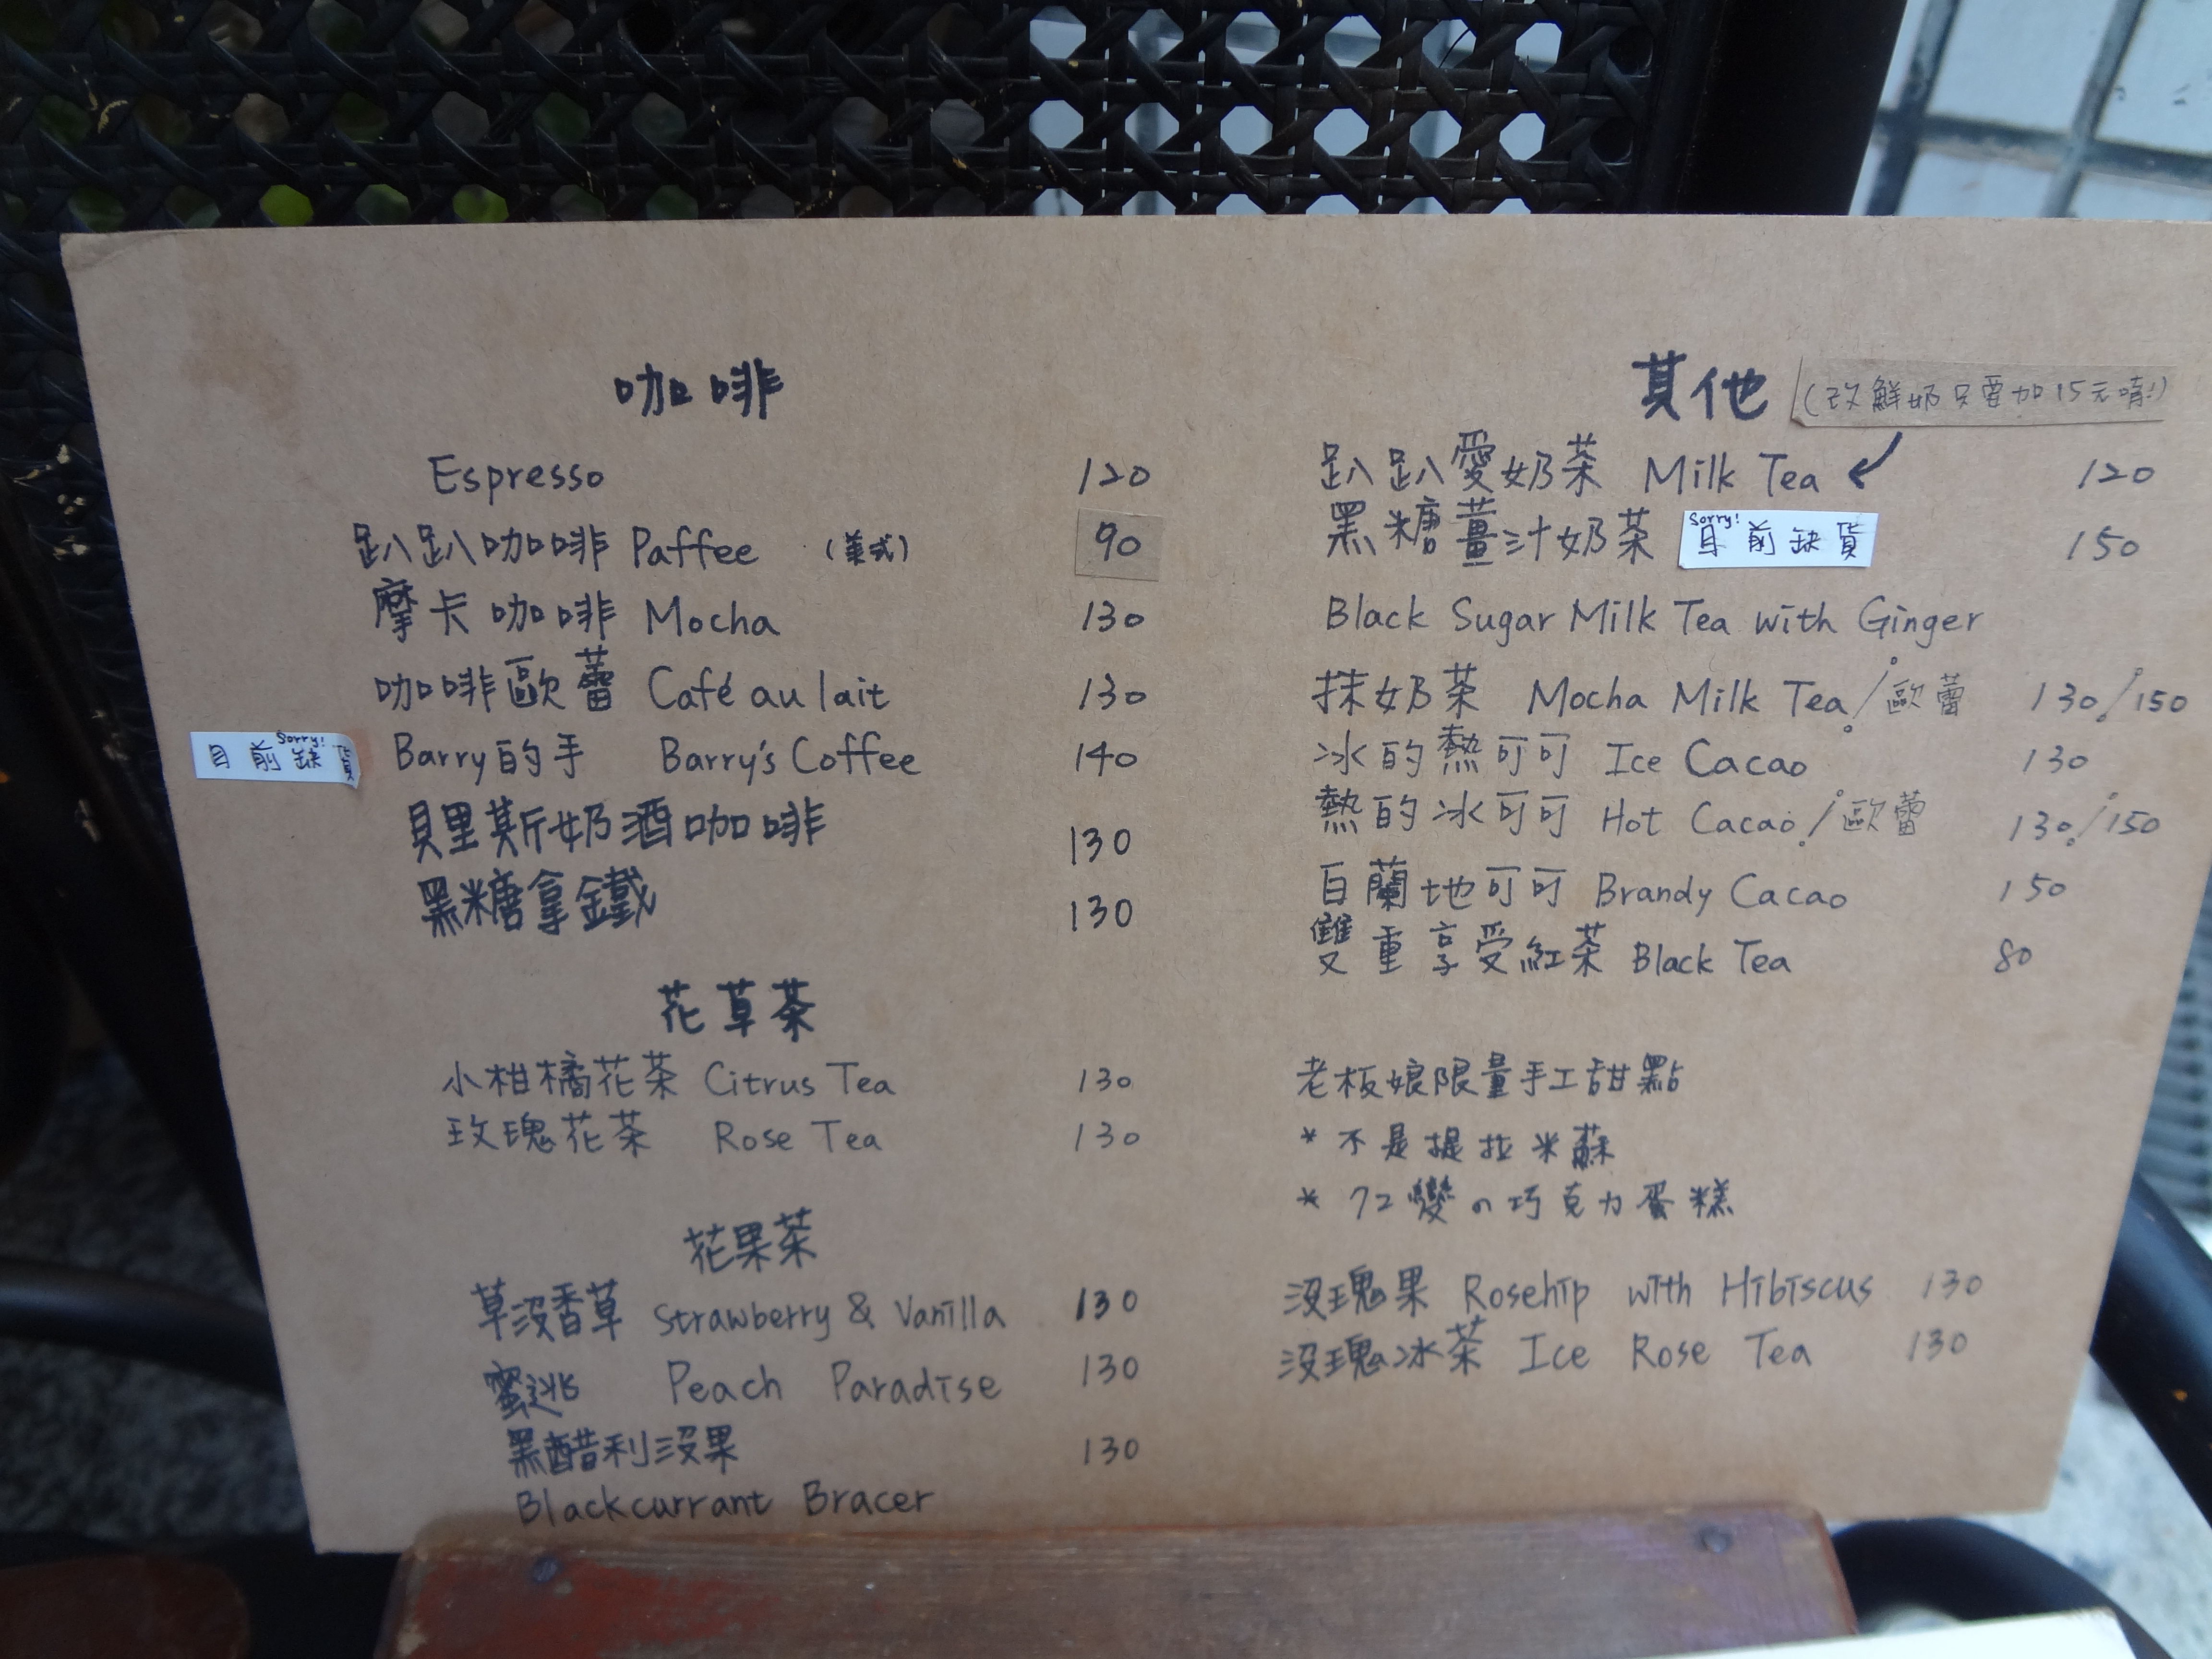 咖啡
Espresso 120
趴趴咖啡 Paffee (美式) 90
摩卡咖啡 Mocha 130
咖啡歐蕾 Café au lait 130
Sorry!
目前缺貨 Barry的手 Barry's Coffee 140
貝里斯奶酒咖啡 130
黑糖拿鐵 130
花草茶
小柑橘花茶 Citrus Tea 130
玫瑰花茶 Rose Tea 130
花果茶
草沒香草 Strawberry & Vanilla 130
蜜逃 Peach Paradise 130
黑醋利沒果 130
Blackcurrant Bracer
其他 (改鮮奶只要加15元唷!)
趴趴愛奶茶 Milk Tea 120
Sorry!
黑糖薑汁奶茶 目前缺貨 150
Black Sugar Milk Tea with Ginger
抹奶茶 Mocha Milk Tea/歐蕾 130/150
冰的熱可可 Ice Cacao 130
熱的冰可可 Hot Cacao/歐蕾 130/150
白蘭地可可 Brandy Cacao 150
雙重享受紅茶 Black Tea 80
老板娘限量手工甜點
* 不是提拉米蘇
* 72變の巧克力蛋糕
沒瑰果 Rosehip with Hibiscus 130
沒瑰冰茶 Ice Rose Tea 130